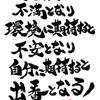 不満となり
環境に期待すると
不安となり
自分に期待すると
出番となる!